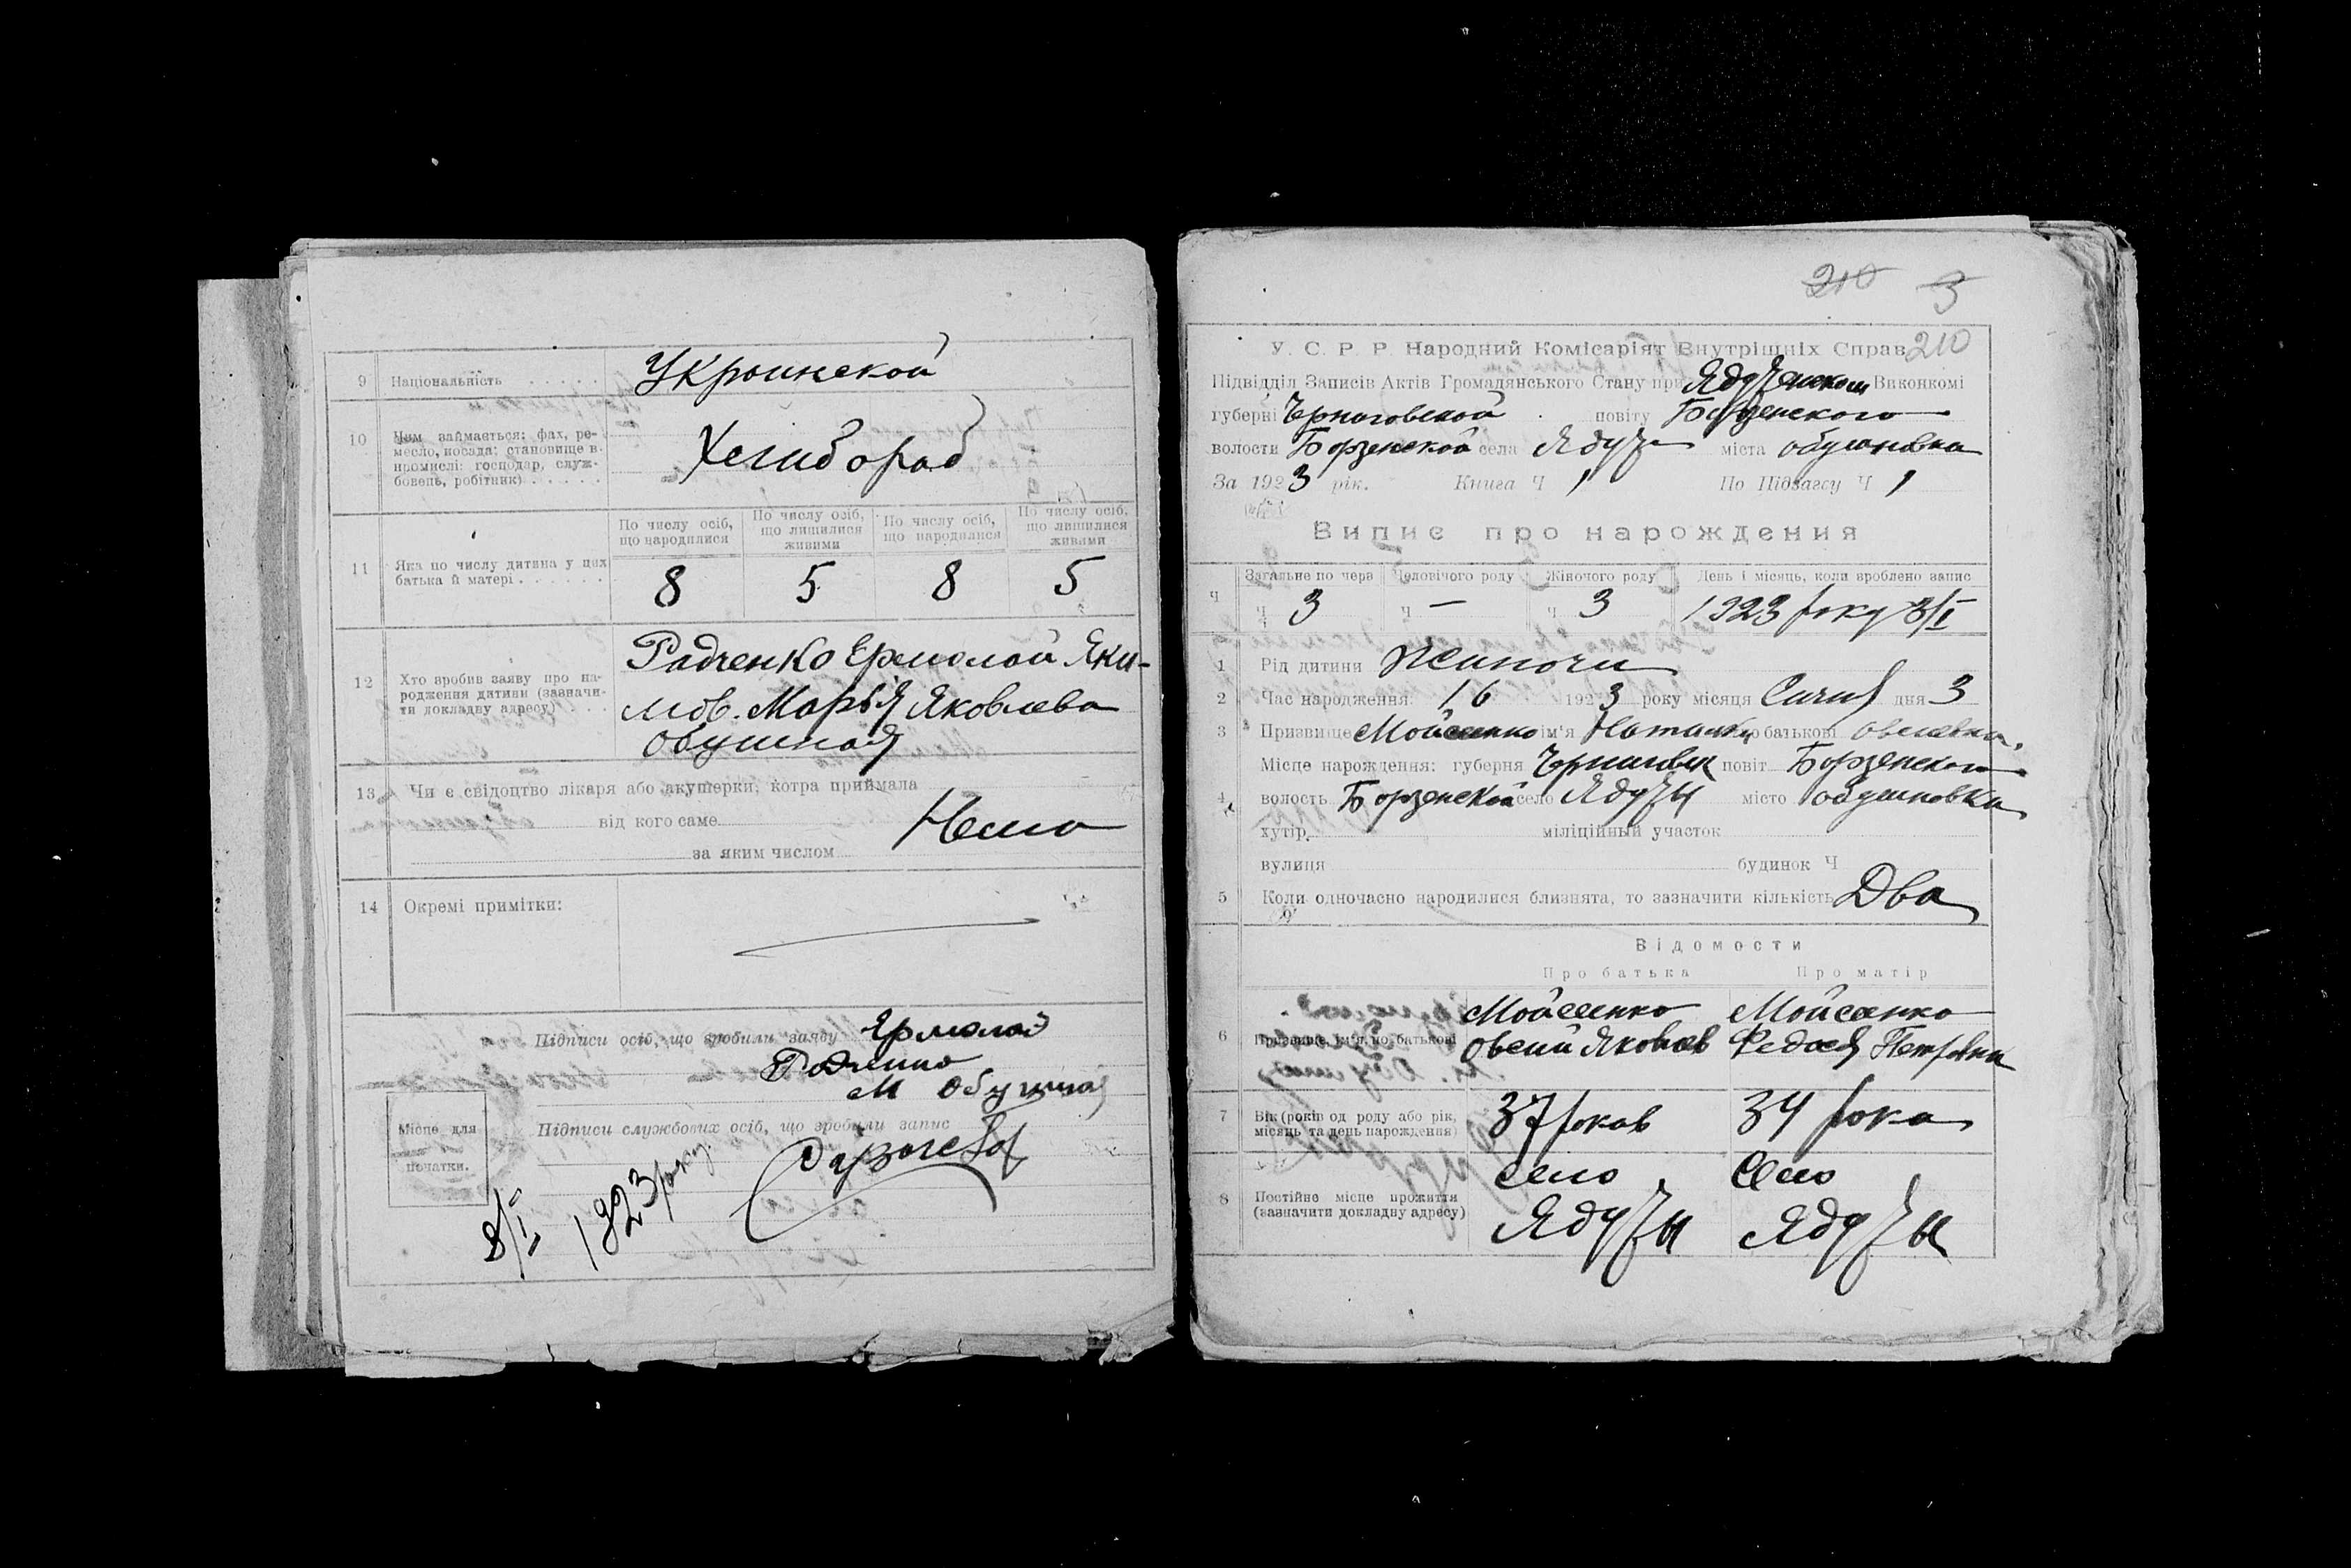 9 Національність . . . . . Украинской
10 Чим займається: фах, ре-
месло, посада; становище в
промислі: господар, служ-
бовець, робітник) . . . . . .
Хегибораб
11 Яка по числу дитина у цих
батька й матері . . . . . . .
По числу осіб, що народилися
По числу осіб, що лишилися живими
По числу осіб, що народилися
По числу осіб, що лишилися живими
8 5 8 5
12 Хто зробив заяву про на-
родження дитини (зазначи-
ти докладну адресу) . . . .
Радченко Ермолай Яки-
мов. Марья Яковлева
Обушная
13 Чи є свідоцтво лікаря або акушерки, котра приймала
від кого саме
Нема
за яким числом
14 Окремі примітки:
Підписи осіб, що зробили заяву Ермолай
Радченко
М Обушная
Місце для
печатки.
Підписи службових осіб, що зробили запис
8/I 1923 року.
210 3
У. С. Р. Р. Народний Комісаріят Внутрішніх Справ 210
Підвідділ Записів Актів Громадянського Стану при Ядутенском Виконкомі
губерні Черниговской повіту Борзенского
волости Борзенской села Ядуты міста обушновка
За 1923 рік. Книга Ч 1 По Підзагсу Ч 1
Випис про народження
Загальне по черв Чоловічого роду Жіночого роду День і місяць, коли зроблено запис
Ч Ч 3 Ч — Ч 3 1923 року 8/I
1 Рід дитини Жиночи
2 Час народження 16 1923 року місяця Сичня дня 3
3 Призвище Мойсеенко ім'я Наталка по батькові Овсеевна.
Місце нарождення: губерня Чернигивск повіт Борзенского
4 волость Борзенской село Ядуты місто обушновка
хутір міліційный участок
вулиця будинок Ч
5 Коли одночасно народилися близнята, то зазначити кількість Два
Відомости
Про батька Про матір
6 Призвище, ім'я, по батькові
Мойсеенко Мойсеенко
Овсий Яковлев Федосья Петровна
7 Вік (років од роду або рік,
місяць та день народження)
37 роков 34 рока
8 Постійне місце прожиття
(зазначити докладну адресу)
село Село
Ядуты Ядуты